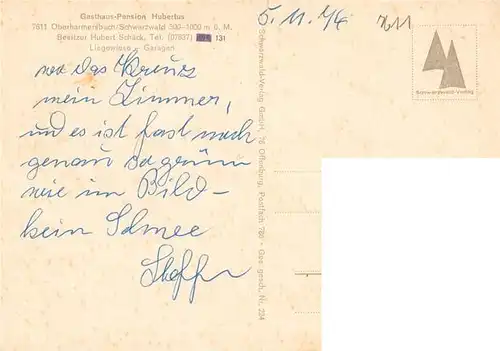 Gasthaus-Pension Hubertus
7611 Oberharmersbach/Schwarzwald 300-1000 m ü. M.
Besitzer Hubert Schäck, Tel. (07837) 131
Liegewiese - Garagen
wo das Kreuz
mein Zimmer,
und es ist fast noch
genau so grün
wie im Bild -
kein Schnee
Steffi
5.11.76
7611
Schwarzwald-Verlag
Schwarzwald-Verlag GmbH, 76 Offenburg, Postfach 780 - Ges. gesch. Nr. 234